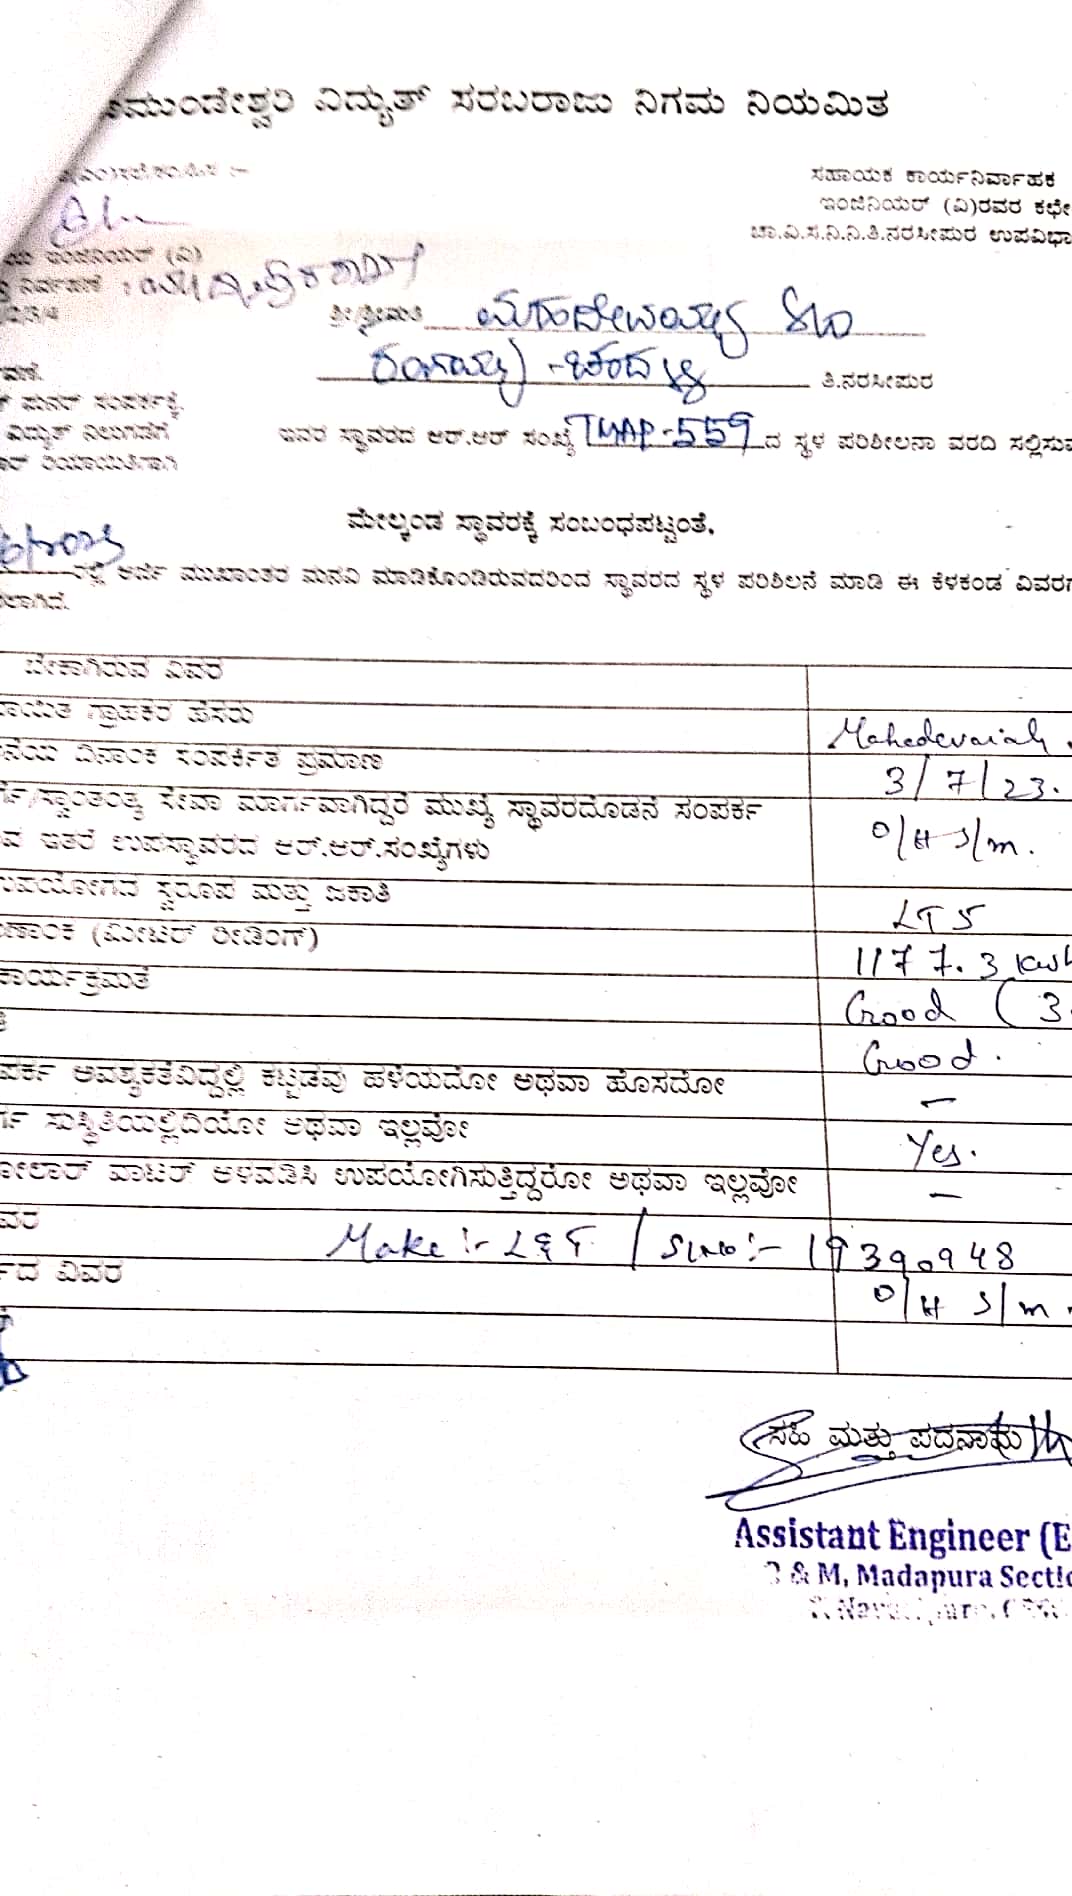 ಮುಂಡೇಶ್ವರಿ ವಿದ್ಯುತ್ ಸರಬರಾಜು ನಿಗಮ ನಿಯಮಿತ
ಸಹಾಯಕ ಕಾರ್ಯನಿರ್ವಾಹಕ
ಇಂಜಿನಿಯರ್ (ವಿ)ರವರ ಕಛೇ
ಚಾ.ವಿ.ಸ.ನಿ.ನಿ.ತಿ.ನರಸೀಪುರ ಉಪವಿಭಾ
ಇಂಜಿನಿಯರ್ (ವಿ)
2/3/4
ಶ್ರೀ/ಶ್ರೀಮತಿ ಮಹದೇವಯ್ಯ S/O
ರಂಗಯ್ಯ - ತಿ.ನರಸೀಪುರ
ಮನರ್ ಸಂಪರ್ಕಕ್ಕೆ
ವಿದ್ಯುತ್ ನಿಲುಗಡೆಗೆ
ರಿಯಾಯಿತಿಗಾಗಿ
ಇವರ ಸ್ಥಾವರದ ಆರ್.ಆರ್ ಸಂಖ್ಯೆ TMAP-559 ದ ಸ್ಥಳ ಪರಿಶೀಲನಾ ವರದಿ ಸಲ್ಲಿಸುವ
ಮೇಲ್ಕಂಡ ಸ್ಥಾವರಕ್ಕೆ ಸಂಬಂಧಪಟ್ಟಂತೆ,
ಅರ್ಜಿ ಮುಖಾಂತರ ಮನವಿ ಮಾಡಿಕೊಂಡಿರುವದರಿಂದ ಸ್ಥಾವರದ ಸ್ಥಳ ಪರಿಶಿಲನೆ ಮಾಡಿ ಈ ಕೆಳಕಂಡ ವಿವರಗ
ಲಾಗಿದೆ.
ಬೇಕಾಗಿರುವ ವಿವರ
ಾಯಿತ ಗ್ರಾಹಕರ ಹೆಸರು Mahedevaiah
ನೆಯ ದಿನಾಂಕ ಸಂಪರ್ಕಿತ ಪ್ರಮಾಣ 3/7/23.
ರ್ಗ/ಸ್ವಾಂತಂತ್ಯ ಸೇವಾ ಮಾರ್ಗವಾಗಿದ್ದರೆ ಮುಖ್ಯೆ ಸ್ಥಾವರದೊಡನೆ ಸಂಪರ್ಕ
ವ ಇತರೆ ಉಪಸ್ಥಾವರದ ಆರ್.ಆರ್.ಸಂಖ್ಯೆಗಳು O/H S/m.
ಉಪಯೋಗದ ಸ್ವರೂಪ ಮತ್ತು ಜಕಾತಿ LT5
ಣಾಂಕ (ಮೀಟರ್ ರೀಡಿಂಗ್) 1177.3 kwh
ಕಾರ್ಯಕ್ರಮತೆ Good (3.
Good.
ಪರ್ಕ ಆವಶ್ಯಕತೆವಿದ್ದಲ್ಲಿ ಕಟ್ಟಡವು ಹಳೆಯದೋ ಅಥವಾ ಹೊಸದೋ –
ರ್ಗ ಸುಸ್ಥಿತಿಯಲ್ಲಿದಿಯೋ ಅಥವಾ ಇಲ್ಲವೋ Yes.
ೋಲಾರ್ ವಾಟರ್ ಅಳವಡಿಸಿ ಉಪಯೋಗಿಸುತ್ತಿದ್ದರೋ ಅಥವಾ ಇಲ್ಲವೋ –
ವರ Make :- L&T / SLNO :- 19390948
ರ್ಗದ ವಿವರ O/H S/m.
ಸಹಿ ಮತ್ತು ಪದನಾಮ
Assistant Engineer (E
& M, Madapura Sectio